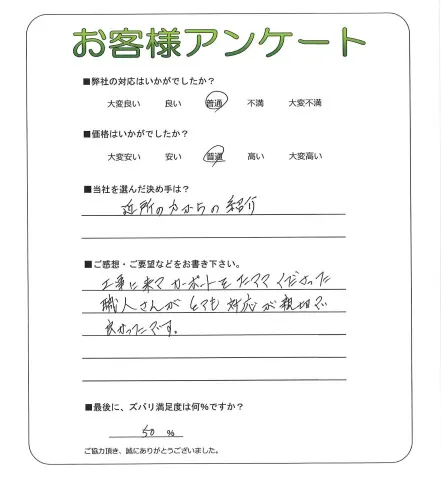 お客様アンケート
■弊社の対応はいかがでしたか？
大変良い 良い 普通 不満 大変不満
■価格はいかがでしたか？
大変安い 安い 普通 高い 大変高い
■当社を選んだ決め手は？
近所の方からの紹介
■ご感想・ご要望などをお書き下さい。
工事に来て カーポートを くださった
職人さんが とても 対応が親切で
良かったです。
■最後に、ズバリ満足度は何％ですか？
50 %
ご協力頂き、誠にありがとうございました。